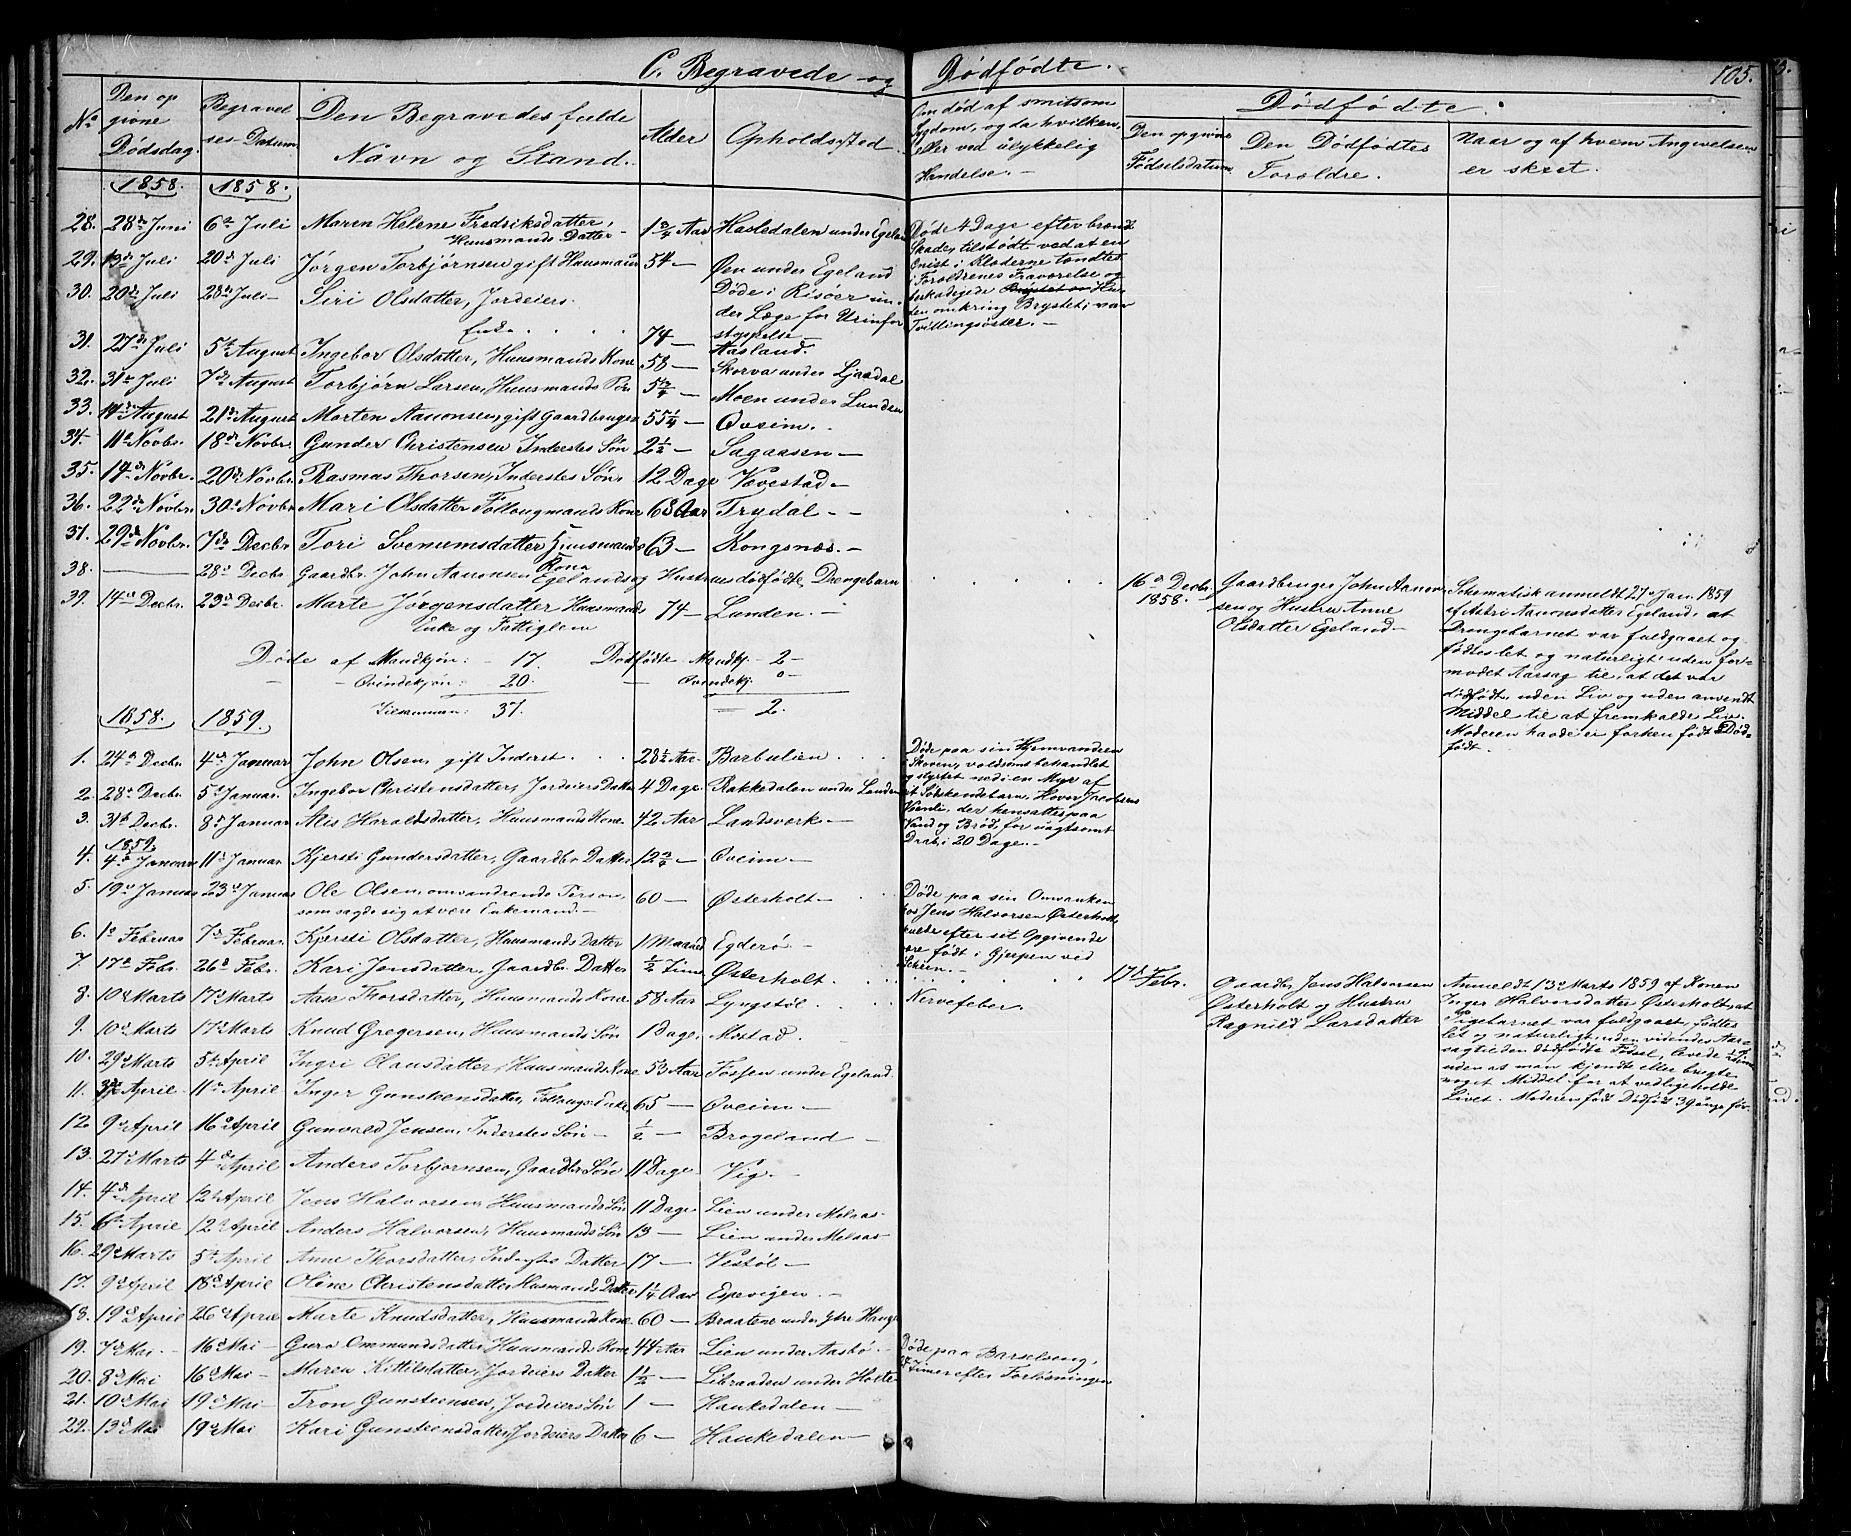 C. Begravede og Dødfødte. 105.
No Den opgivne Dødsdag. Begravelses Datum Den Begravedes fulde Navn og Stand. Alder Opholdssted. Om død af smitsom Sygdom, og da hvilken, eller ved ulykkelig Hændelse. Dødfødte. Den opgivne Fødselsdatum Den Dødfødtes Forældre. Naar og af hvem Angivelsen er skeet.
1858. 1858.
28. 28de Juni 6te Juli Maren Helene Fredriksdatter, Huusmands Datter 1 3/4 Aar Hasledalen under Egeland Døde 4 Dage efter brændt
29. 13de Juli 20de Juli Jørgen Torbjørnsen gift Huusmand 54 Øen under Egeland
30. 20de Juli 28de Juli Siri Olsdatter, Jordeiers Enke 74 Døde i Risøer under Læge for Urinforstoppelse Aasland.
Skade, tilstødt ved at en Gnist i Klæderne tændtes i Forældrenes Fraværelse og beskadigede Huden omkring Brystet; var Tvillingsøster.
31. 27de Juli 5te August Ingebor Olsdatter, Huusmands Kone 58 Skorva under Ljaadal
32. 31te Juli 7de August Torbjørn Larsen, Huusmands 5 3/4 Moen under Lunden
33. 14de August 21de August Morten Aanonsen, gift Gaardbruger 55 1/4 Øveim.
34. 11te Novbr. 18de Novbr. Gunder Christensen Inderstes Søn 2 1/2 Sagaasen
35. 14de Novbr. 20de Novbr. Rasmas Thorsen, Inderstes Søn 12 Dage Vævestad
36. 22de Novbr. 30te Novbr. Mari Olsdatter Follaugmands Kone 68 Aar Trydal
37. 29de Novbr. 7de Decbr. Tori Svenumsdatter Huusmands Kone 63 Kongsnæs.
38. 28de Decbr. Gaardbr. John Aanonsen Egelands og Hustrues dødfødte Drengebarn 16de Decbr. 1858. Gaardbruger John Aanonsen og Hustru Anne Olsdatter Egeland
39. 14de Decbr. 23de Decbr. Marte Jørgensdatter Huusmands Enke og Fattiglem 74 Lunden.
Schematisk anmeldt 27de Jan. 1859
af Aanonsdatter Egeland, at
Drengebarnet var fuldgaaet og
fødtes let og naturligt, uden formodet Aarsag til, at det var
dødfødt, uden Liv og uden anvendt
Middel til at fremkalde Liv.
Moderen havde ei forhen født Dødfødt.
Døde af Mandkjøn: 17. Dødfødte Mandkj. 2
Qvindekjøn: 20. Qvindekj. 0
Tilsammen: 37. 2.
1858. 1859.
1. 24de Decbr. 4de Januar John Olsen, gift Inderst 28 1/2 Aar Barbulien Døde paa sin Hjemvandren i Skoven, voldsomt behandlet og styrtet ned i en Myr af sit Søskendebarn, Hover Jacobsen, der hensattes paa Vand og Brød, for uagtsomt Drab, i 20 Dage.
2. 28de Decbr. 5te Januar. Ingebor Christensdatter, Jordeiers Datter 4 Dage Rakkedalen under Lunden
3. 31te Decbr. 8de Januar Alis Haraldsdatter, Huusmands Kone 42 Aar Landsværk
1859
4. 4de Januar 11te Januar Kjersti Gundersdatter, Gaardbr. Datter 12 3/4 Øveim
5. 19de Januar 23de Januar Ole Olsen, omvandrende Person, som sagde sig at være Enkemand. 60 Østerholt Døde paa sin Omvanken hos Jens Halvorsen Østerholt, skulde efter sit Opgivende være født i Gjerpen ved Skien.
6. 1ste Februar 7de Februar. Kjersti Olsdatter, Huusmands Datter 1 Maaned Egderø
7. 17de Febr. 26de Febr. Kari Jensdatter, Gaardbr. Datter 1/2 Time Østerholt 17de Febr. Gaardbr. Jens Halvorsen Østerholt og Hustru Ragnild Larsdatter
Anmeldt 13de Marts 1859 af Konen
Inger Halvorsdatter Østerholt, at
Pigebarnet var fuldgaaet, fødtes
let og naturligt, uden vidende Aarsag til den dødfødte Fødsel, levede 1/2 Time
uden at man kjendte eller brugte
noget Middel for at vedligeholde
Livet. Moderen født Dødfødt 3 Gange før.
8. 10de Marts 17de Marts Aase Thorsdatter, Huusmands Kone 58 Aar Lyngstøl Nervefeber.
9. 10de Marts 17de Marts Knud Gregersen, Huusmands Søn 1 Dag Mostad.
10. 29de Marts 5te April Ingri Olausdatter, Huusmands Kone 53 Aar Fossen under Egeland
11. April 11te April Inger Gunsteensdatter, Follaugs Enke 65 Øveim
12. 9de April 16de April Gunvald Jensen, Inderstes Søn 1/2 Brogeland
13. 27de Marts 4de April Anders Torbjørnsen, Gaardbr. Søn 11 Dage Vig.
14. 4de April 12te April Jens Halvorsen, Huusmands Søn 11 Dage Lien under Melaas
15. 6te April 12te April Anders Halvorsen, Huusmands Søn 13 Lien under Melaas
16. 29de Marts 5te April Anne Thorsdatter, Inderstes Datter 17 Vestøl
17. 9de April 18de April Oline Christensdatter Husmands Datter 1 1/4 Aar Espevigen
18. 19de April 26de April Marte Knudsdatter, Huusmands Kone 60 Braatene under Ytre Hauge
19. 7de Mai 16de Mai Guro Ommundsdatter Huusmands Kone 44 Aar Lien under Aasbø Døde paa Barselseng, Timer efter Forløsningen
20. 8de Mai 16de Mai Maren Kittilsdatter, Jordeiers Datter 1 1/2 Libraaden under Holte
21. 10de Mai 19de Mai Tron Gunsteensen, Jordeiers Søn 1 Haukedalen
22. 13de Mai 19de Mai Kari Gunsteensdatter, Jordeiers Datter 6 Haukedalen